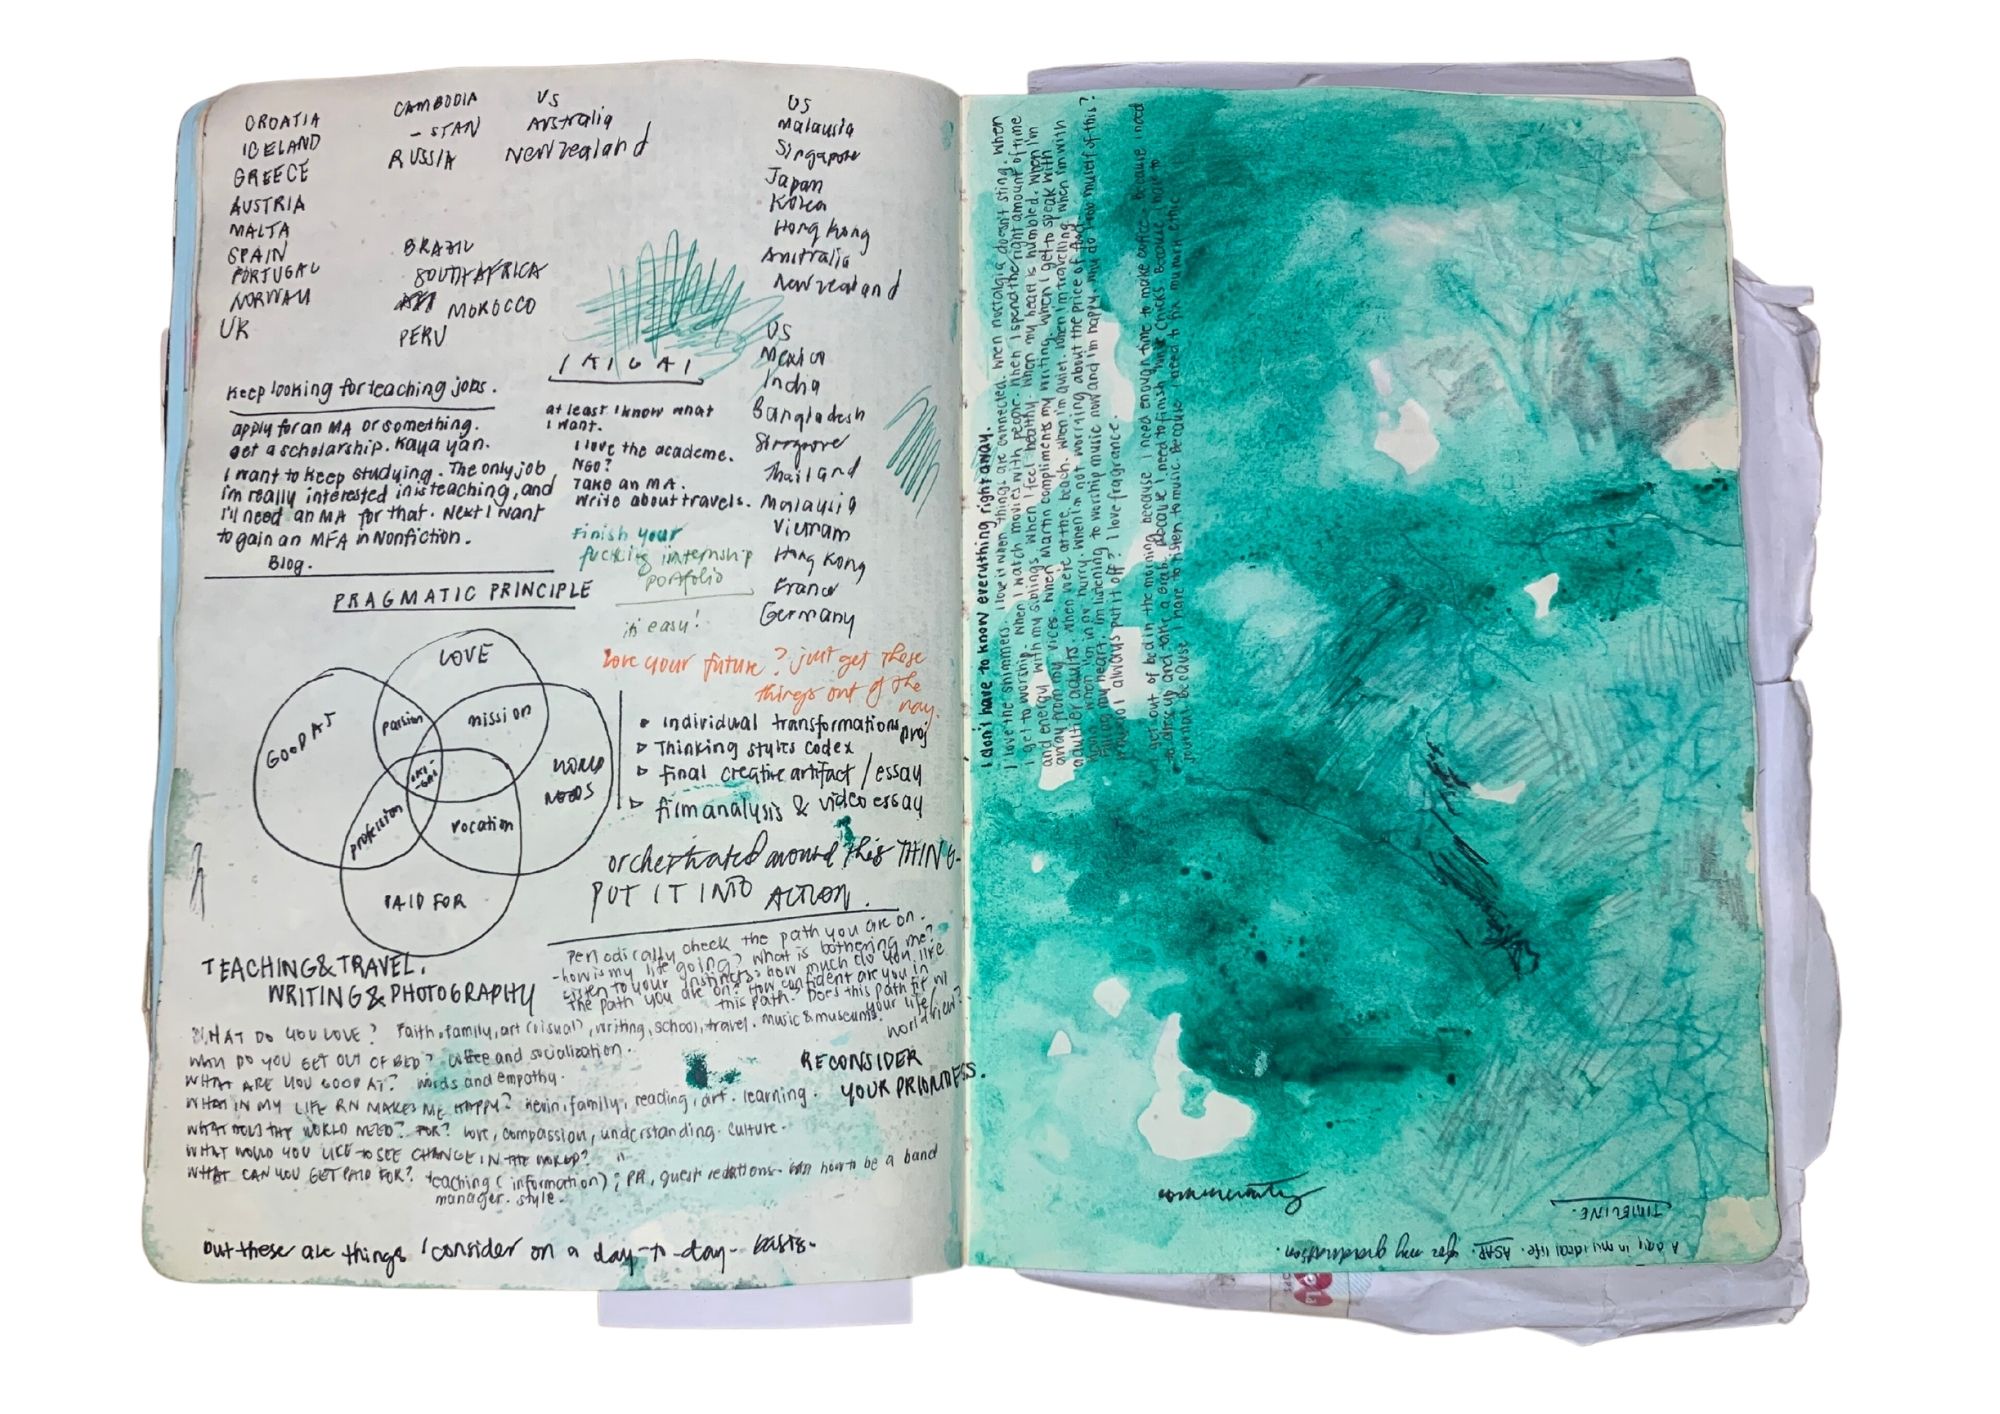 CROATIA
ICELAND
GREECE
AUSTRIA
MALTA
SPAIN
PORTUGAL
NORWAY
UK
CAMBODIA
-STAN
RUSSIA
BRAZIL
SOUTH AFRICA
MOROCCO
PERU
US
Australia
New Zealand
US
Malaysia
Singapore
Japan
Korea
Hong Kong
Australia
New Zealand
US
Mexico
India
Bangladesh
Singapore
Thailand
Malaysia
Vietnam
Hong Kong
France
Germany
Keep looking for teaching jobs.
apply for an MA or something.
get a scholarship. Kaya yan.
I want to keep studying. The only job
i'm really interested in is teaching, and
I'll need an MA for that. Next I want
to gain an MFA in Nonfiction.
Blog.
IKIGAI
at least I know what
I want.
I love the academe.
NGO?
Take an MA.
Write about travels.
Finish your
fucking internship
portfolio
it's easy!
Love your future? just get these
things out of the
way.
Individual transformations proj
Thinking styles codex
final creative artifact / essay
film analysis & video essay
orchestrated around this THING-
PUT IT INTO ACTION.
PRAGMATIC PRINCIPLE
LOVE
GOOD AT
passion
mission
IKI-
GAI
WORLD
NEEDS
profession
vocation
PAID FOR
TEACHING & TRAVEL,
WRITING & PHOTOGRAPHY
Periodically check the path you are on.
-how is my life going? What is bothering me?
Listen to your instincts. how much do you like
the path you are on? How confident are you in
this path? Does this path fit w/
your life/
worldview?
WHAT DO YOU LOVE? Faith, family, art (visual), writing, school, travel. music & museums.
WHY DO YOU GET OUT OF BED? coffee and socialization.
WHAT ARE YOU GOOD AT? words and empathy.
WHAT IN MY LIFE RN MAKES ME HAPPY? Kevin, family, reading, art. learning.
WHAT DOES THE WORLD NEED? FOR? love, compassion, understanding. culture.
WHAT WOULD YOU LIKE TO SEE CHANGE IN THE WORLD? "
WHAT CAN YOU GET PAID FOR? teaching (information); PR, guest relations. how to be a band
manager. style.
RECONSIDER
YOUR PRIORITIES.
but these are things I consider on a day-to-day basis.
I don't have to know everything right away.
I love the shimmers. I love it when things are connected. when nostalgia doesn't sting. when
I get to worship. When I watch movies with people. when I spend the right amount of time
and energy with my siblings. When I feel healthy. When my heart is humbled. When I'm
away from my vices. When Martin compliments my writing. when I get to speak with
adultier adults. When we're at the beach. when I'm quiet. When I'm travelling. when I'm with
when I'm in no hurry. When I'm not worrying about the price of food.
my heart. I'm listening to worship music now and I'm happy. why do I rob myself of this?
why do I always put it off? I love fragrance.
I get out of bed in the morning because I need enough time to make coffee. Because I need
to dress up and take a grab. because I need to finish Because I have to
journal. Because I have to listen to music. Because I need to
community
TIMELINE.
A day in my ideal life. ASAP. for my graduation.